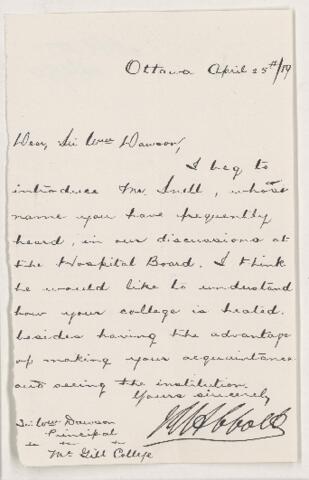 Ottawa April 25th/89
Dear Sir Wm Dawson,
I beg to
introduce Mr. Snell, whose
name you have frequently
heard, in our discussions at
the Hospital Board. I think
he would like to understand
how your college is heated.
besides having the advantage
of making your acquaintance
and seeing the institution.
Yours sincerely
JJC Abbott
Sir Wm Dawson
Principal
McGill College